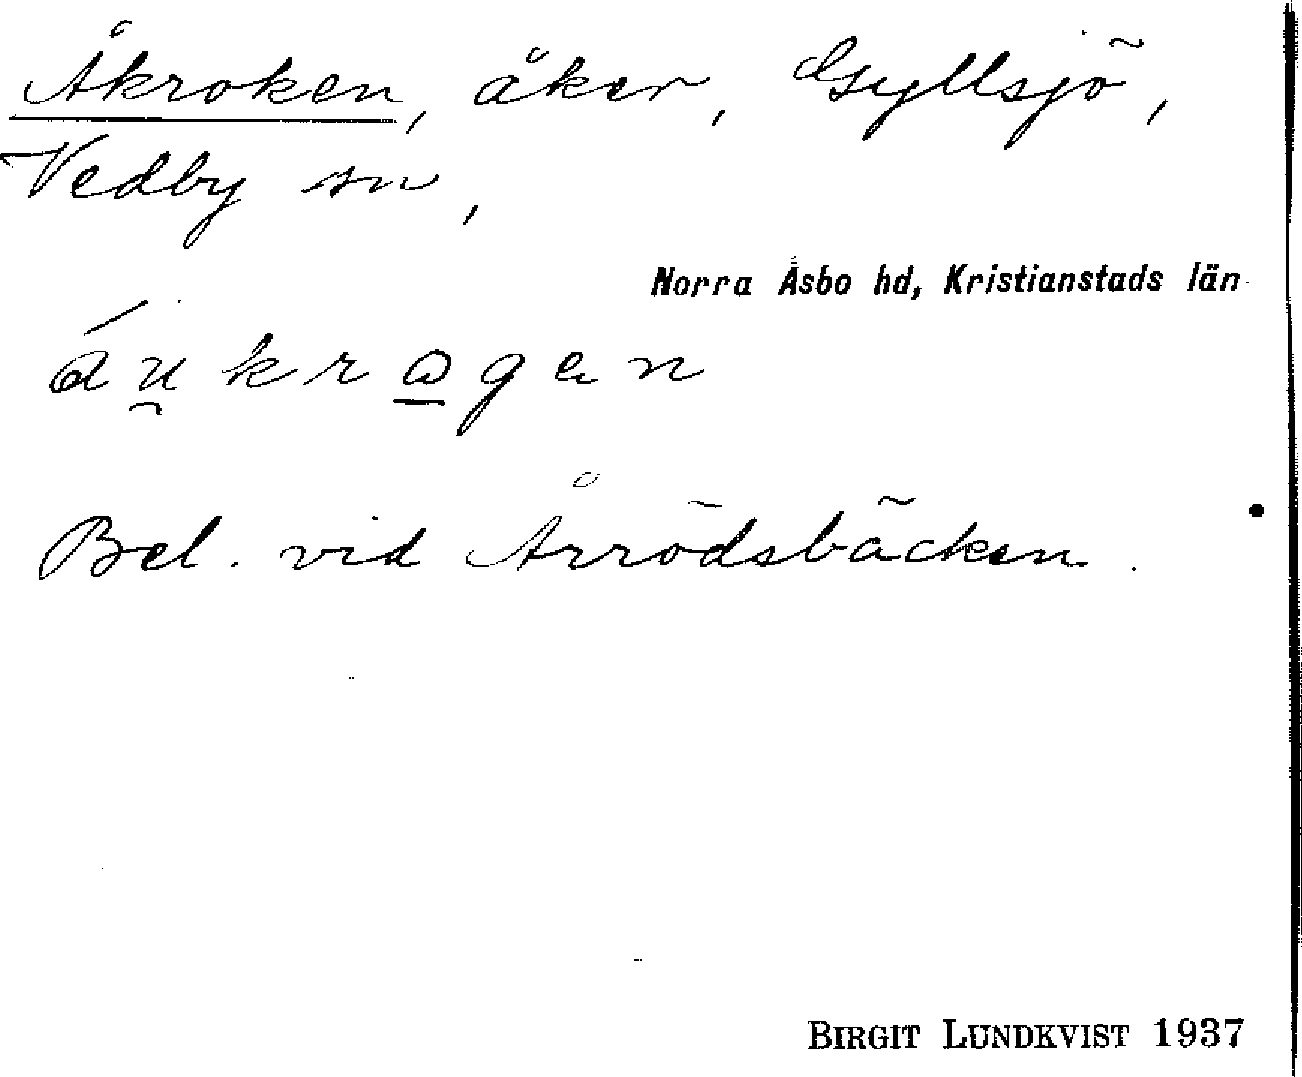 Åkroken, åker, Gyllsjö,
Vedby sn,
Norra Åsbo hd, Kristianstads län
áu̯krꙍ̲gən
Bel. vid Årrödsbäcken.
BIRGIT LUNDKVIST 1937